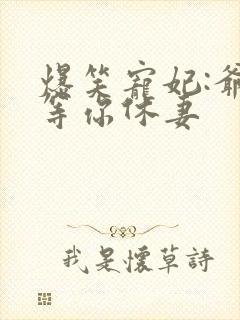 爆笑寵妃:爺
等你休妻
我是懷草詩